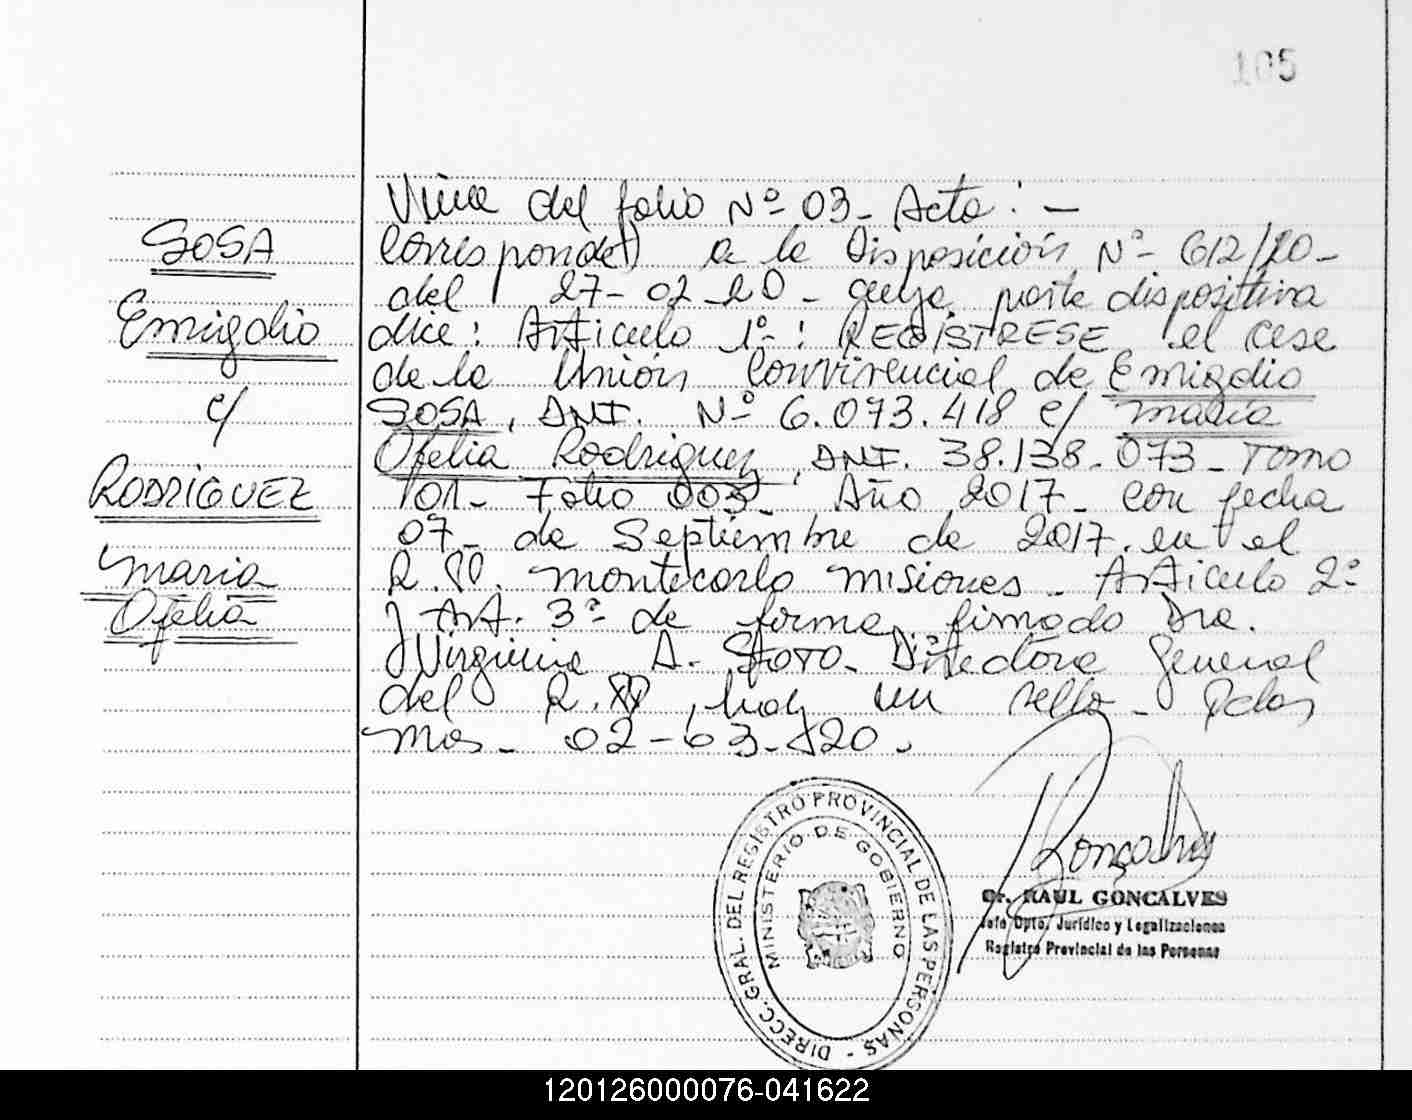 105
Viene del folio Nº 03- Acta: -
SOSA
Emigdio
c/
RODRIGUEZ
Maria
Ofelia
Corresponde a la Disposición Nº 612/20-
del 27-02-20- cuya parte dispositiva
dice: Articulo 1º: REGISTRESE el cese
de la Unión Convivencial de Emigdio
SOSA, DNI. Nº 6.073.418 c/ Maria
Ofelia Rodriguez, DNI. 38.138.073- Tomo
01- Folio 003- Año 2017- con fecha
07- de Septiembre de 2017. en el
R.PP. Montecarlo Misiones- Articulo 2º
y Art. 3º de forma, firmado Dra.
Virginia A. Directora General
del R.PP, hay un sello- Pdas
Mns- 02-03-20.
DIRECC. GRAL. DEL REGISTRO PROVINCIAL DE LAS PERSONAS -
MINISTERIO DE GOBIERNO
Dr. RAUL GONCALVES
Jefe Dpto. Jurídico y Legalizaciones
Registro Provincial de las Personas
120126000076-041622